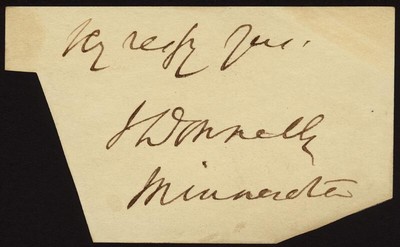 Vy respy yrs.
I Donnelly
Minnesota